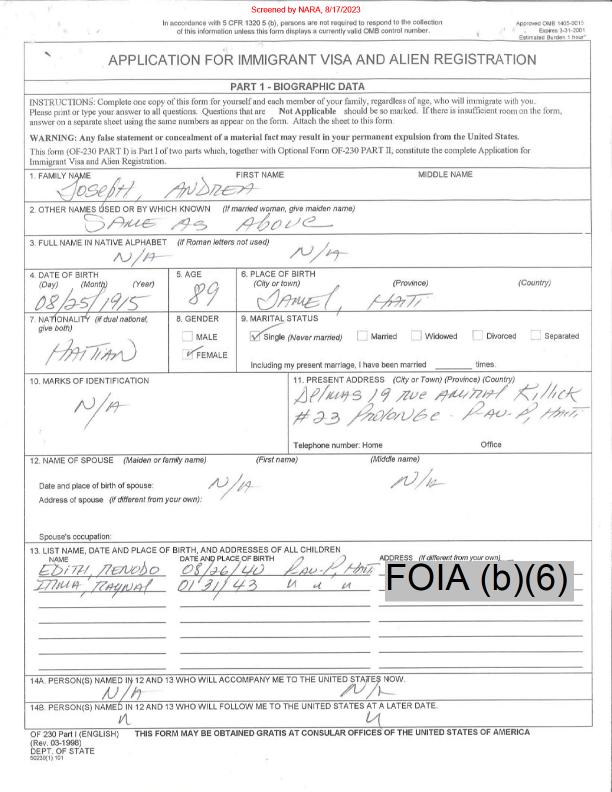 Screened by NARA, 8/17/2023
In accordance with 5 CFR 1320 5 (b), persons are not required to respond to the collection
of this information unless this form displays a currently valid OMB control number.
Approved OMB 1405-0015
Expires 3-31-2001
Estimated Burden 1 hour*
APPLICATION FOR IMMIGRANT VISA AND ALIEN REGISTRATION
PART 1 - BIOGRAPHIC DATA
INSTRUCTIONS: Complete one copy of this form for yourself and each member of your family, regardless of age, who will immigrate with you.
Please print or type your answers to all questions. Questions that are Not Applicable should be so marked. If there is insufficient room on the form,
answer on a separate sheet using the same numbers as appear on the form. Attach the sheet to this form.
WARNING: Any false statement or concealment of a material fact may result in your permanent expulsion from the United States.
This form (OF-230 PART I) is Part I of two parts which, together with Optional Form OF-230 PART II, constitute the complete Application for
Immigrant Visa and Alien Registration.
1. FAMILY NAME FIRST NAME MIDDLE NAME
Joseph, ANDREA
2. OTHER NAMES USED OR BY WHICH KNOWN (If married woman, give maiden name)
SAME AS ABOVE
3. FULL NAME IN NATIVE ALPHABET (If Roman letters not used)
N/A N/A
4. DATE OF BIRTH
(Day) (Month) (Year)
08/25/1915
5. AGE
89
6. PLACE OF BIRTH
(City or town) (Province) (Country)
JAMEL, HAITI
7. NATIONALITY (If dual national,
give both)
HAITIAN
8. GENDER
MALE
FEMALE
9. MARITAL STATUS
Single (Never married) Married Widowed Divorced Separated
Including my present marriage, I have been married times.
10. MARKS OF IDENTIFICATION
N/A
11. PRESENT ADDRESS (City or Town) (Province) (Country)
Delmas 19 rue Amiral Killick
#23 Prolonge - P-au-P, Haiti
Telephone number: Home Office
12. NAME OF SPOUSE (Maiden or family name) (First name) (Middle name)
Date and place of birth of spouse: N/A N/A
Address of spouse (If different from your own):
Spouse's occupation:
13. LIST NAME, DATE AND PLACE OF BIRTH, AND ADDRESSES OF ALL CHILDREN
NAME DATE AND PLACE OF BIRTH ADDRESS (If different from your own)
EDITH, 08/26/40 P-au-P, Haiti
01/31/43 " " "
FOIA (b)(6)
14A. PERSON(S) NAMED IN 12 AND 13 WHO WILL ACCOMPANY ME TO THE UNITED STATES NOW.
N/A N/A
14B. PERSON(S) NAMED IN 12 AND 13 WHO WILL FOLLOW ME TO THE UNITED STATES AT A LATER DATE.
" "
OF 230 Part I (ENGLISH) THIS FORM MAY BE OBTAINED GRATIS AT CONSULAR OFFICES OF THE UNITED STATES OF AMERICA
(Rev. 03-1998)
DEPT. OF STATE
50230(1) 101